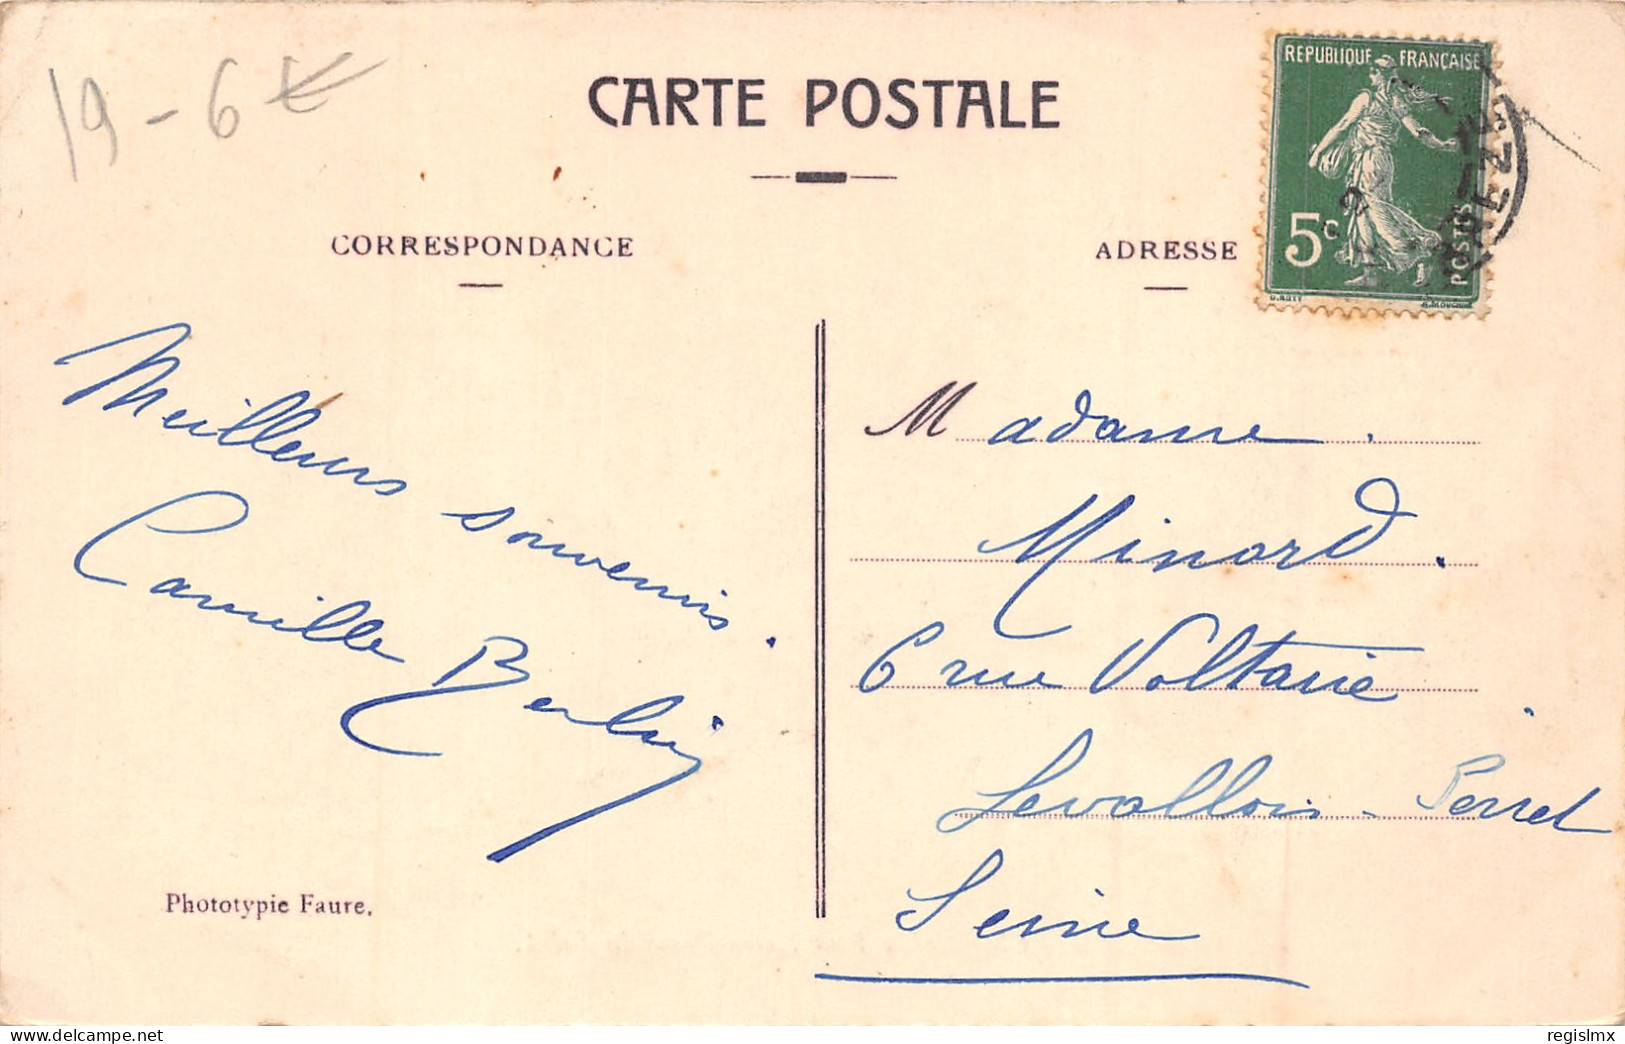 19-6€
CARTE POSTALE
REPUBLIQUE FRANÇAISE
5c
POSTES
CORRESPONDANCE
ADRESSE
Meilleurs souvenirs.
Camille
Phototypie Faure.
Madame.
Minord.
6 rue Voltaire.
Levallois-Perret
Seine
www.delcampe.net
regislmx